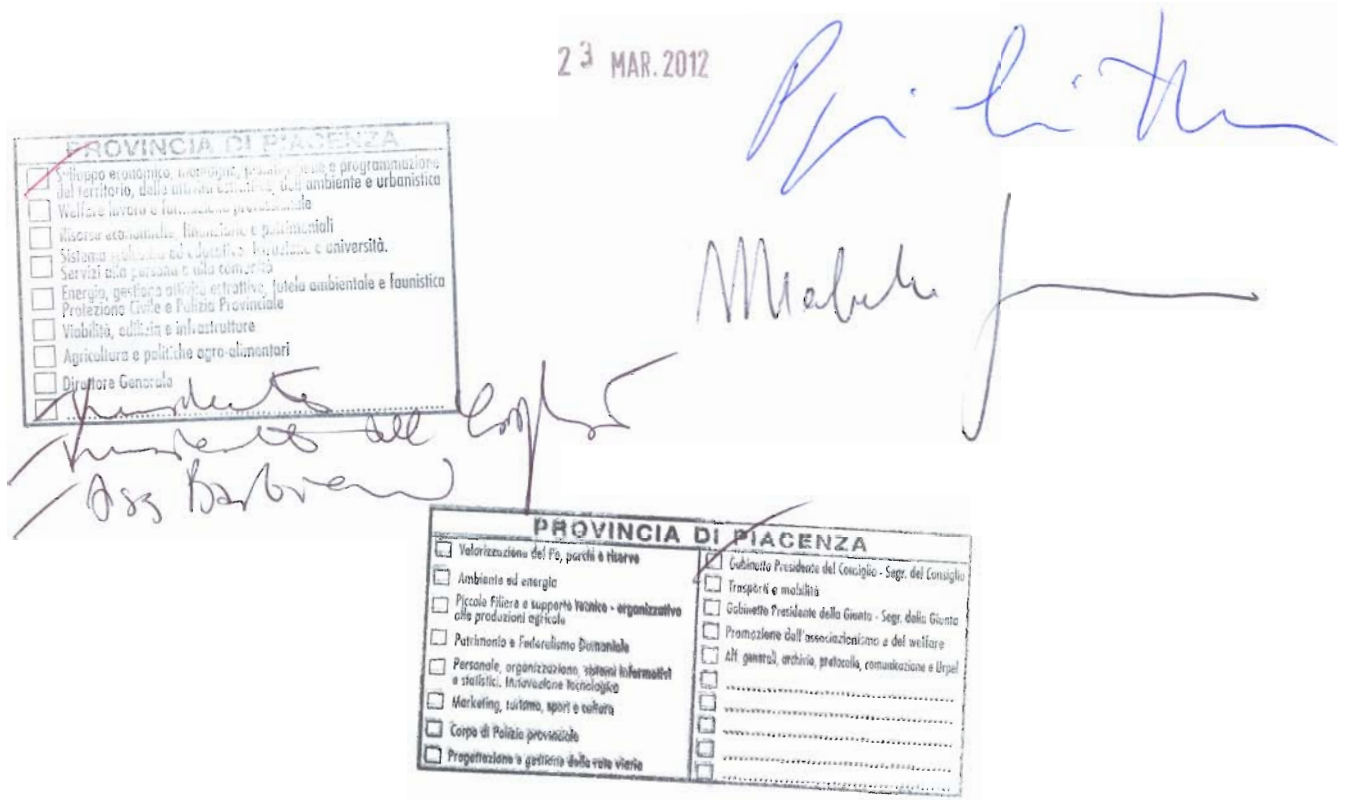 23 MAR. 2012
PROVINCIA DI PIACENZA
Sviluppo economico, montagna, pianificazione e programmazione
del territorio, delle attività estrattive, dell'ambiente e urbanistica
Welfare lavoro e formazione professionale
Risorse economiche, finanziarie e patrimoniali
Sistema scolastico ed educativo. Istruzione e università.
Servizi alla persona e alla comunità
Energia, gestione attività estrattive, tutela ambientale e faunistica
Protezione Civile e Polizia Provinciale
Viabilità, edilizia e infrastrutture
Agricoltura e politiche agro-alimentari
Direttore Generale
Presidente
Presidente
Ass
PROVINCIA DI PIACENZA
Valorizzazione del Po, parchi e riserve
Ambiente ed energia
Piccole Filiere e supporto tecnico - organizzativo
alle produzioni agricole
Patrimonio e Federalismo Demaniale
Personale, organizzazione, sistemi informativi
e statistici. Innovazione tecnologica
Marketing, turismo, sport e cultura
Corpo di Polizia provinciale
Progettazione e gestione della rete viaria
Gabinetto Presidente del Consiglio - Segr. del Consiglio
Trasporti e mobilità
Gabinetto Presidente della Giunta - Segr. della Giunta
Promozione dell'associazionismo e del welfare
Aff. generali, archivio, protocollo, comunicazione e Urpel